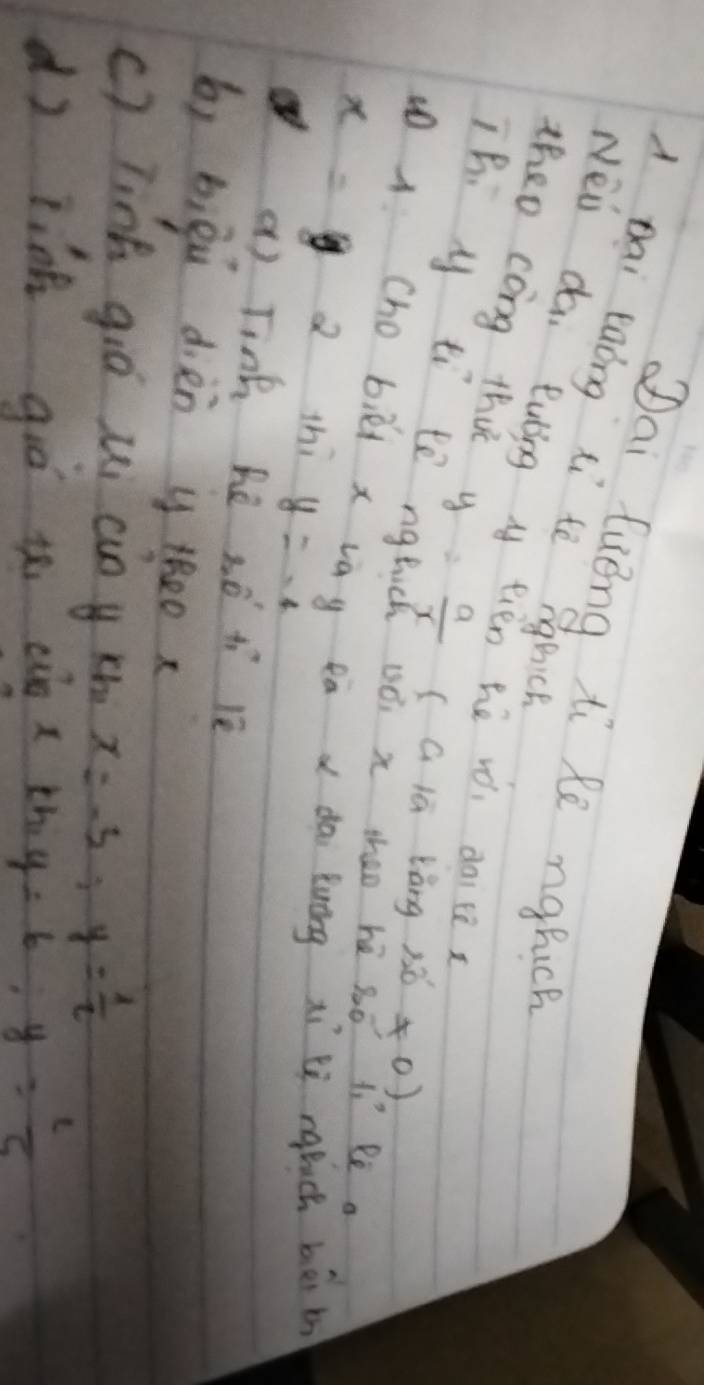 Đại lượng tỉ lệ nghịch
1 Đại lượng tỉ lệ nghịch
Nếu đại lượng y liên hệ với đại lx
theo công thức y = a/x ( a là hằng số ≠ 0)
Thì y tỉ lệ nghịch với x theo hệ số tỉ lệ a
1. Cho biết x và y là 2 đại lượng tỉ lệ nghịch biết
x = 2 thì y =
a) Tính hệ số tỉ lệ
b, biểu diễn y theo x
c) Tính giá trị của y khi x = -3 ; y = 1/2
d) Tính giá trị của x khi y = 6 , y =